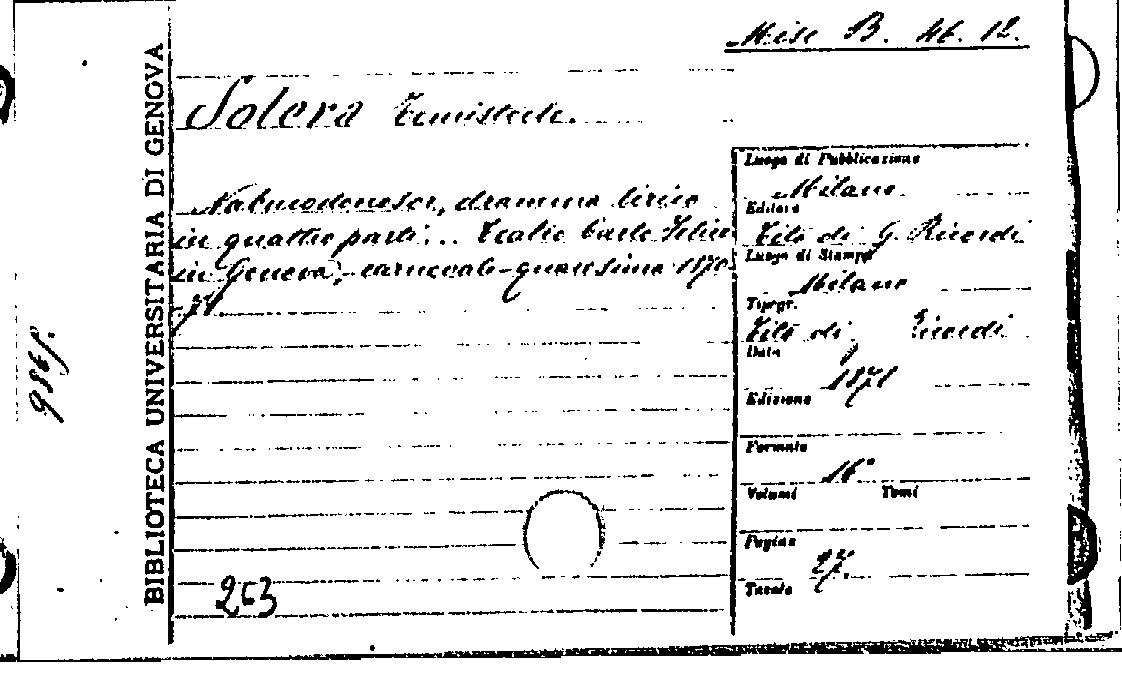 Misc B. 46. 12.
Solera Temistocle.
Nabucodonosor, dramma lirico
in quattro parti... Teatro Carlo Felice
in Genova, carnevale-quaresima 1870-
71
Luogo di Pubblicazione
Milano
Editore
Tito di G. Ricordi
Luogo di Stampa
Milano
Tipogr.
Tito di Ricordi
Data
1871
Edizione
Formato
16°
Volumi Tomi
Pagine
27.
Tavole
263
BIBLIOTECA UNIVERSITARIA DI GENOVA